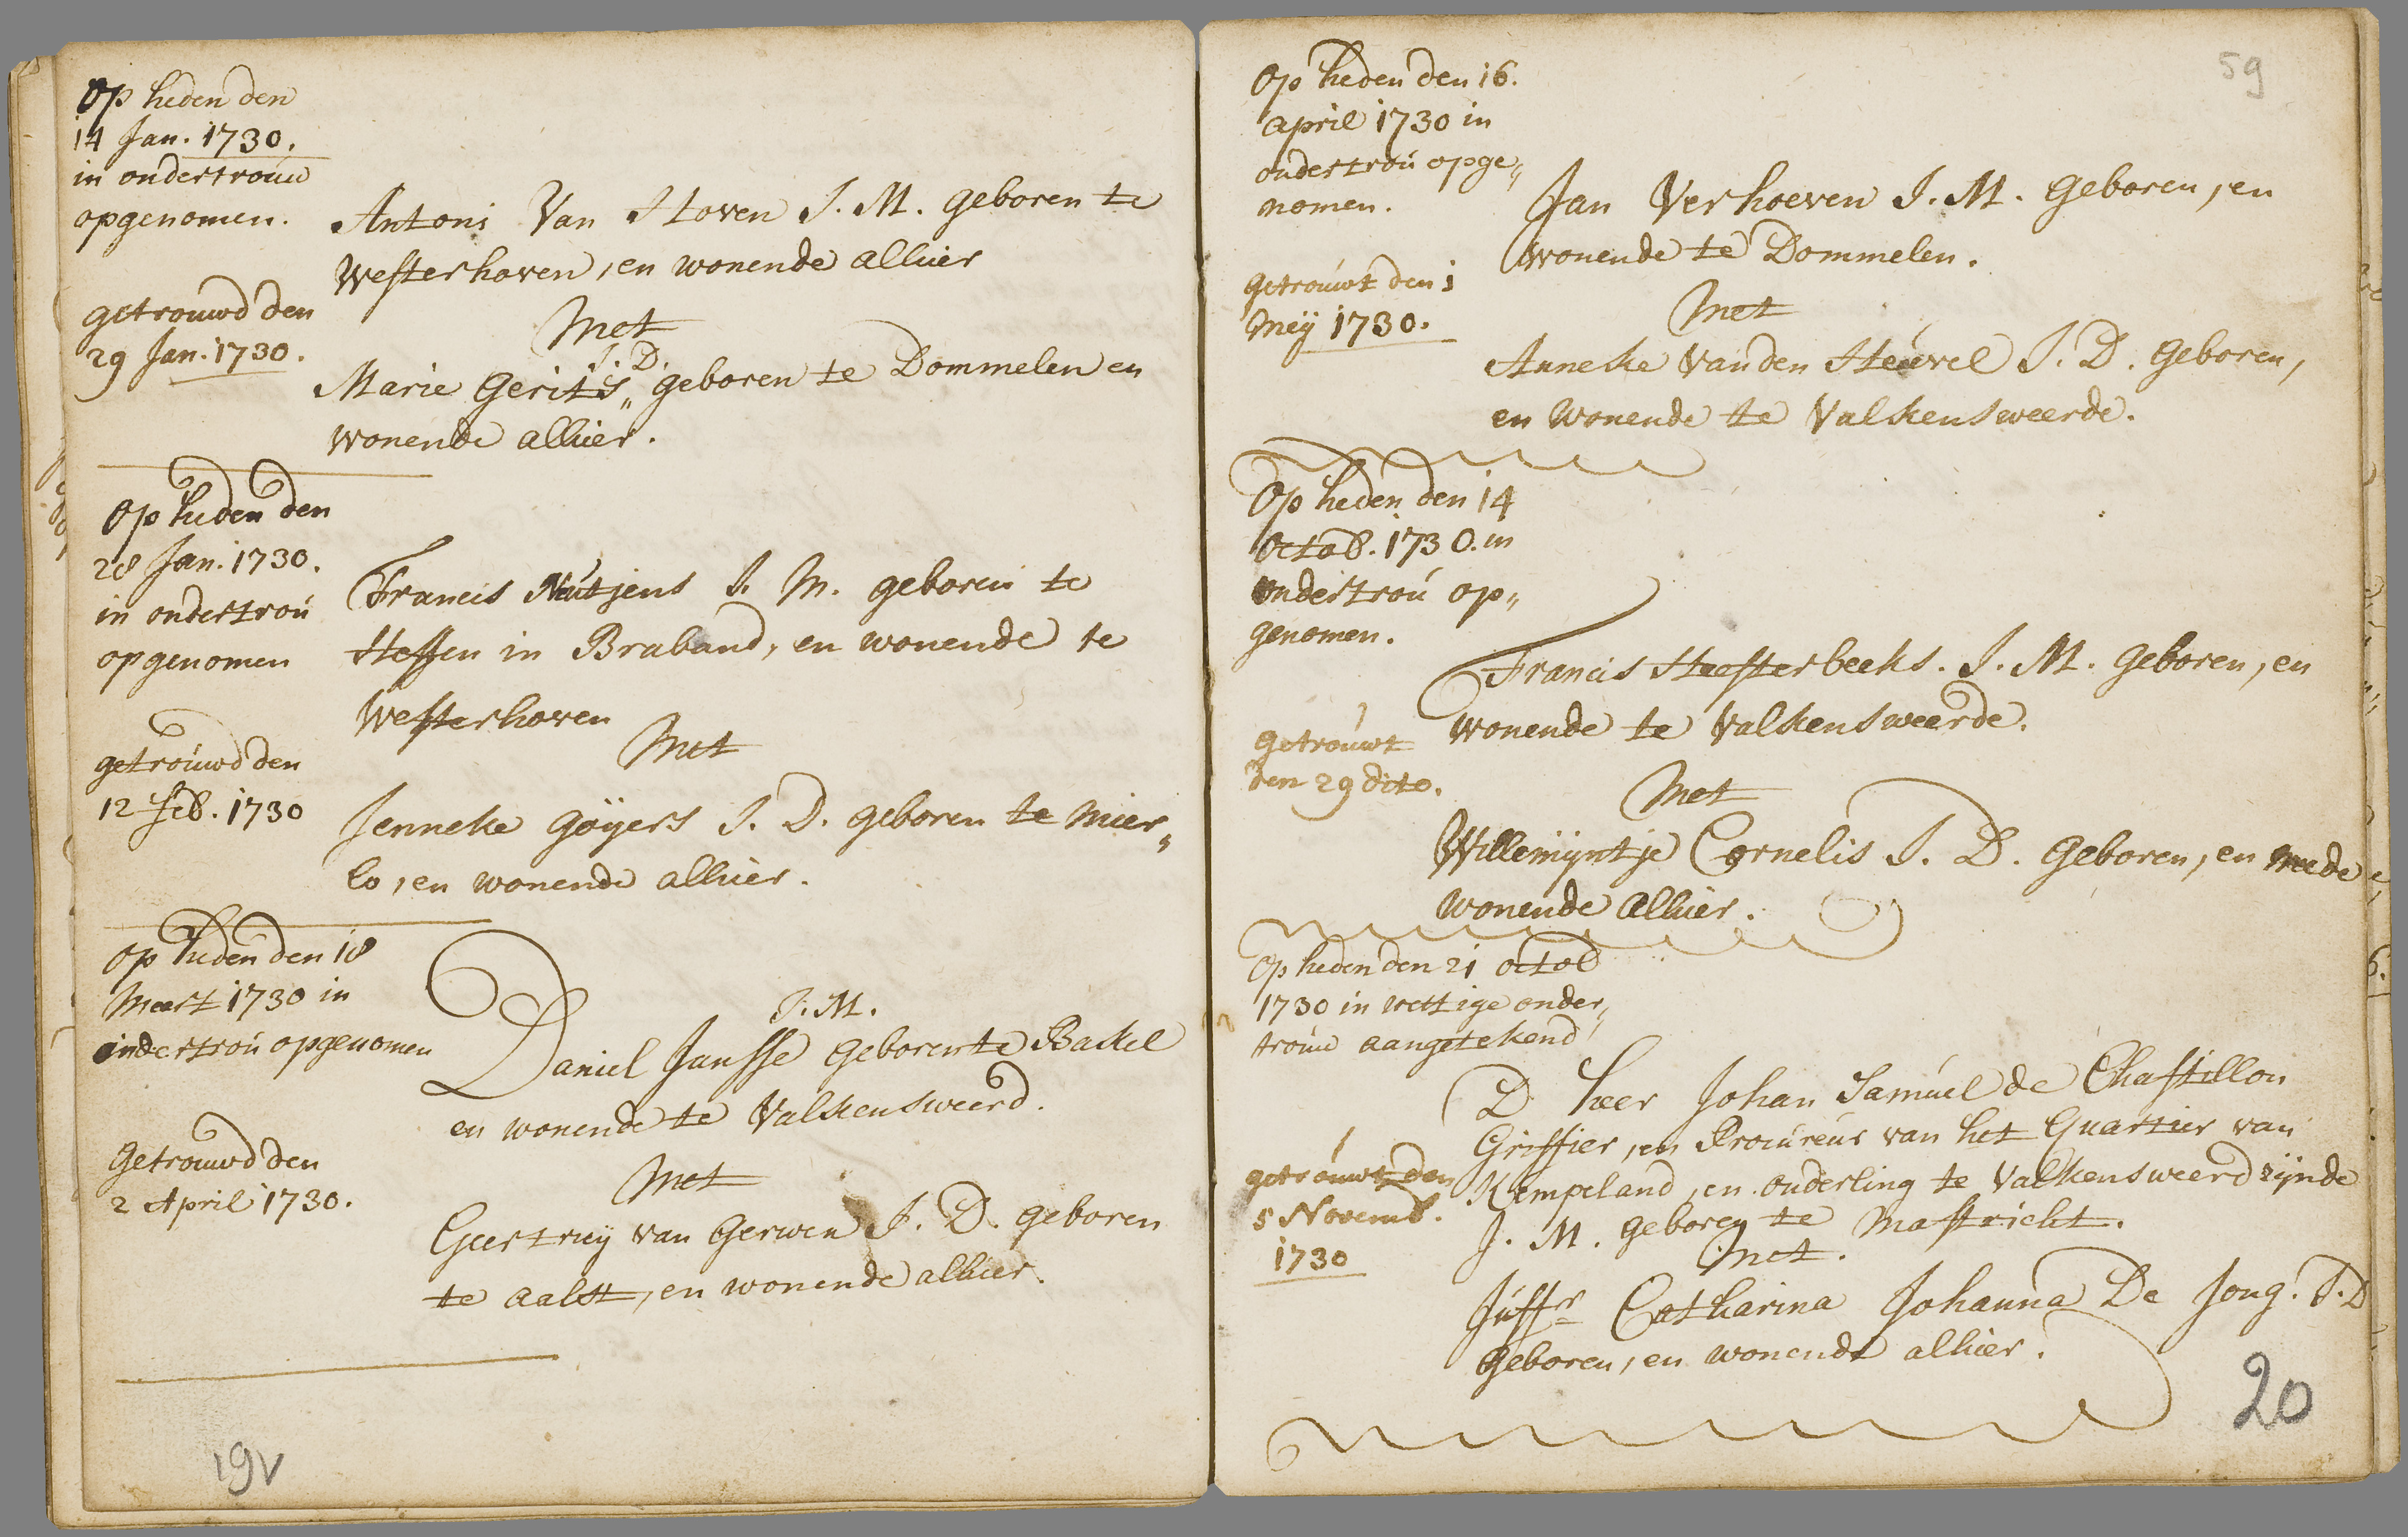 Op heden den
14 Jan. 1730.
in ondertrouw
opgenomen.
Antoni Van Hoven J. M. geboren te
Westerhoven, en wonende alhier
getrouwd den
29 Jan. 1730.
Met
J. D.
Marie Gerits„ geboren te Dommelen en
wonende alhier.
Op heden den
28 Jan. 1730.
in ondertrou
opgenomen
Francis Neutjens J. M. geboren te
Heffen in Braband, en wonende te
Westerhoven
getrouwd den
12 Feb. 1730
Met
Jenneke Goÿers J. D. geboren te Mier„
lo, en wonende alhier.
Op heden den 18
Meert 1730 in
ondertrou opgenomen
J. M.
Daniel Jansse geboren te Bakel
en wonende te Valkensweerd.
Getrouwd den
2 April 1730.
Met
Geertruÿ van Gerwen J. D. geboren
te Aalst, en wonende alhier.
19v
59
Op heden den 16.
april 1730 in
ondertrou opge„
nomen.
Jan Verhoeven J. M. geboren, en
wonende te Dommelen.
getrouwt den 1
Meÿ 1730.
Met
Anneke Van den Heuvel J. D. geboren,
en wonende te Valkensweerde.
Op heden den 14
Octob. 1730. in
ondertrou op„
genomen.
Francis Heesterbeeks. J. M. geboren, en
wonende te Valkensweerde.
getrouwt
den 29 dito.
Met
Willemÿntje Cornelis J. D. geboren, en mede
wonende alhier.
Op heden den 21 octob
1730 in wettige onder„
trouw aangetekend
D heer Johan Samuel de Chastillon
Griffier, en Procureur van het Quartier van
Kempeland, en ouderling te Valkensweerd zÿnde
J. M. geboren te Mastricht.
getrouwt den
5 Novemb.
1730
Met.
Juffr Catharina Johanna De Jong. J. D
geboren, en wonende alhier.
20